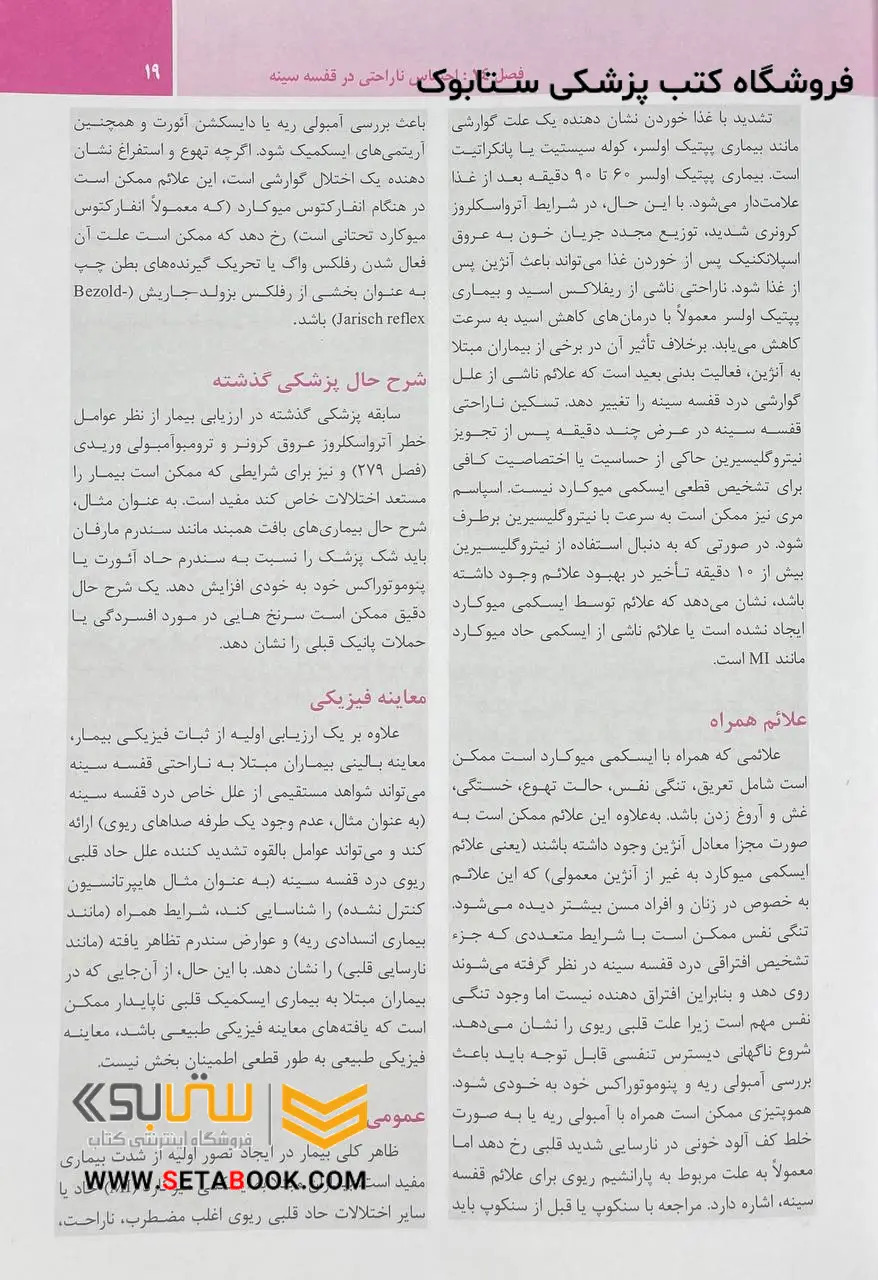 ۱۹
فصل ۱۴: احساس ناراحتی در قفسه سینه
فروشگاه کتب پزشکی ستابوک
تشدید با غذا خوردن نشان دهنده یک علت گوارشی
مانند بیماری پپتیک اولسر، کوله سیستیت یا پانکراتیت
است. بیماری پپتیک اولسر ۶۰ تا ۹۰ دقیقه بعد از غذا
علامت‌دار می‌شود. با این حال، در شرایط آترواسکلروز
کرونری شدید، توزیع مجدد جریان خون به عروق
اسپلانکنیک پس از خوردن غذا می‌تواند باعث آنژین پس
از غذا شود. ناراحتی ناشی از ریفلاکس اسید و بیماری
پپتیک اولسر معمولاً با درمان‌های کاهش اسید به سرعت
کاهش می‌یابد. برخلاف تأثیر آن در برخی از بیماران مبتلا
به آنژین، فعالیت بدنی بعید است که علائم ناشی از علل
گوارشی درد قفسه سینه را تغییر دهد. تسکین ناراحتی
قفسه سینه در عرض چند دقیقه پس از تجویز
نیتروگلیسیرین حاکی از حساسیت یا اختصاصیت کافی
برای تشخیص قطعی ایسکمی میوکارد نیست. اسپاسم
مری نیز ممکن است به سرعت با نیتروگلیسیرین برطرف
شود. در صورتی که به دنبال استفاده از نیتروگلیسیرین
بیش از ۱۰ دقیقه تأخیر در بهبود علائم وجود داشته
باشد، نشان می‌دهد که علائم توسط ایسکمی میوکارد
ایجاد نشده است یا علائم ناشی از ایسکمی حاد میوکارد
مانند MI است.
علائم همراه
علائمی که همراه با ایسکمی میوکارد است ممکن
است شامل تعریق، تنگی نفس، حالت تهوع، خستگی،
غش و آروغ زدن باشد. به‌علاوه این علائم ممکن است به
صورت مجزا معادل آنژین وجود داشته باشند (یعنی علائم
ایسکمی میوکارد به غیر از آنژین معمولی) که این علائم
به خصوص در زنان و افراد مسن بیشتر دیده می‌شود.
تنگی نفس ممکن است با شرایط متعددی که جزء
تشخیص افتراقی درد قفسه سینه در نظر گرفته می‌شوند
روی دهد و بنابراین افتراق دهنده نیست اما وجود تنگی
نفس مهم است زیرا علت قلبی ریوی را نشان می‌دهد.
شروع ناگهانی دیسترس تنفسی قابل توجه باید باعث
بررسی آمبولی ریه و پنوموتوراکس خود به خودی شود.
هموپتیزی ممکن است همراه با آمبولی ریه یا به صورت
خلط کف آلود خونی در نارسایی شدید قلبی رخ دهد اما
معمولاً به علت مربوط به پارانشیم ریوی برای علائم قفسه
سینه، اشاره دارد. مراجعه با سنکوپ یا قبل از سنکوپ باید
باعث بررسی آمبولی ریه یا دایسکشن آئورت و همچنین
آریتمی‌های ایسکمیک شود. اگرچه تهوع و استفراغ نشان
دهنده یک اختلال گوارشی است، این علائم ممکن است
در هنگام انفارکتوس میوکارد (که معمولاً انفارکتوس
میوکارد تحتانی است) رخ دهد که ممکن است علت آن
فعال شدن رفلکس واگ یا تحریک گیرنده‌های بطن چپ
به عنوان بخشی از رفلکس بزولد-جاریش (Bezold-
Jarisch reflex) باشد.
شرح حال پزشکی گذشته
سابقه پزشکی گذشته در ارزیابی بیمار از نظر عوامل
خطر آترواسکلروز عروق کرونر و ترومبوآمبولی وریدی
(فصل ۲۷۹) و نیز برای شرایطی که ممکن است بیمار را
مستعد اختلالات خاص کند مفید است. به عنوان مثال،
شرح حال بیماری‌های بافت همبند مانند سندرم مارفان
باید شک پزشک را نسبت به سندرم حاد آئورت یا
پنوموتوراکس خود به خودی افزایش دهد. یک شرح حال
دقیق ممکن است سرنخ هایی در مورد افسردگی یا
حملات پانیک قبلی را نشان دهد.
معاینه فیزیکی
علاوه بر یک ارزیابی اولیه از ثبات فیزیکی بیمار،
معاینه بالینی بیماران مبتلا به ناراحتی قفسه سینه
می‌تواند شواهد مستقیمی از علل خاص درد قفسه سینه
(به عنوان مثال، عدم وجود یک طرفه صداهای ریوی) ارائه
کند و می‌تواند عوامل بالقوه تشدید کننده علل حاد قلبی
ریوی درد قفسه سینه (به عنوان مثال هایپرتانسیون
کنترل نشده) را شناسایی کند، شرایط همراه (مانند
بیماری انسدادی ریه) و عوارض سندرم تظاهر یافته (مانند
نارسایی قلبی) را نشان دهد. با این حال، از آن‌جایی که در
بیماران مبتلا به بیماری ایسکمیک قلبی ناپایدار ممکن
است که یافته‌های معاینه فیزیکی طبیعی باشد، معاینه
فیزیکی طبیعی به طور قطعی اطمینان بخش نیست.
عمومی
ظاهر کلی بیمار در ایجاد تصور اولیه از شدت بیماری
مفید است
(MI) حاد یا
سایر اختلالات حاد قلبی ریوی اغلب مضطرب، ناراحت،
ستابوک
فروشگاه اینترنتی کتاب
WWW.SETABOOK.COM